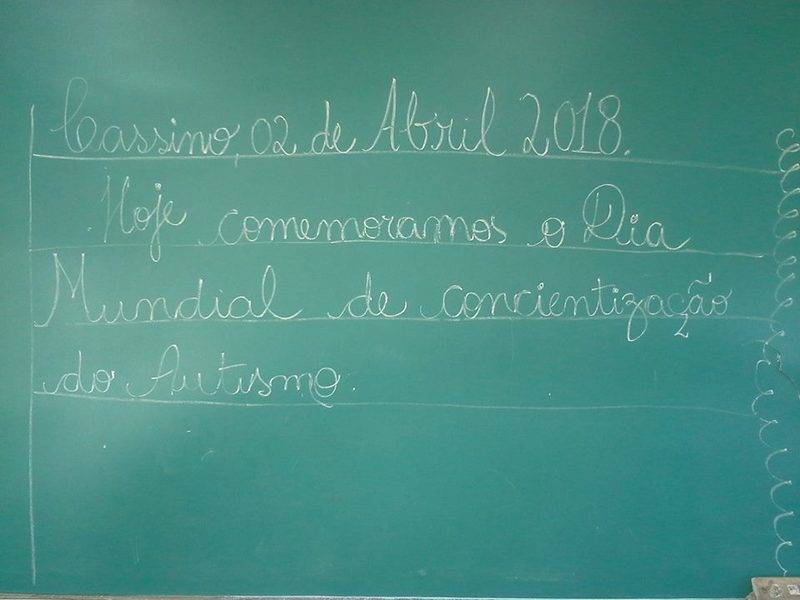 Cassino, 02 de Abril 2018.
Hoje comemoramos o Dia
Mundial de concientização
do Autismo.